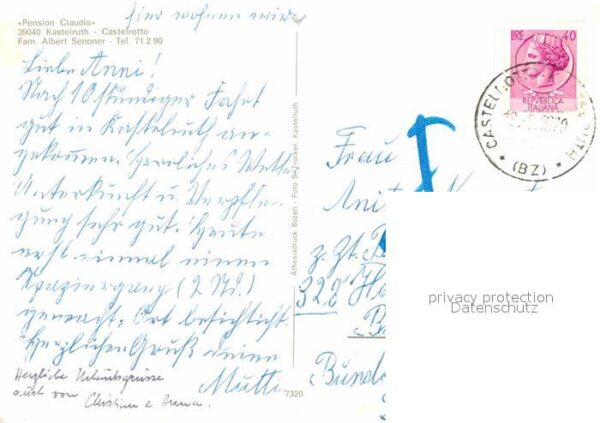 hier wohnen wir
«Pension Claudia»
39040 Kastelruth - Castelrotto
Fam. Albert Senoner - Tel. 71 2 90
Liebe Anni!
Nach 10 stündiger Fahrt
gut in Kastelruth an-
gekommen. Herrliches Wetter
Unterkunft u. Verpfle-
gung sehr gut. Heute
erst einmal einen
Spaziergang (2 Std.)
gemacht. Ort besichtigt.
Herzlichen Gruß deine
Mutti
Herzliche Urlaubsgrüsse
auch von Christian e
7320
Athesiadruck Bozen - Foto Kastelruth
LIRE 40
REPVBBLICA
ITALIANA
CASTEL
(BZ)
Frau
z. Zt.
328
Bünd
privacy protection
Datenschutz